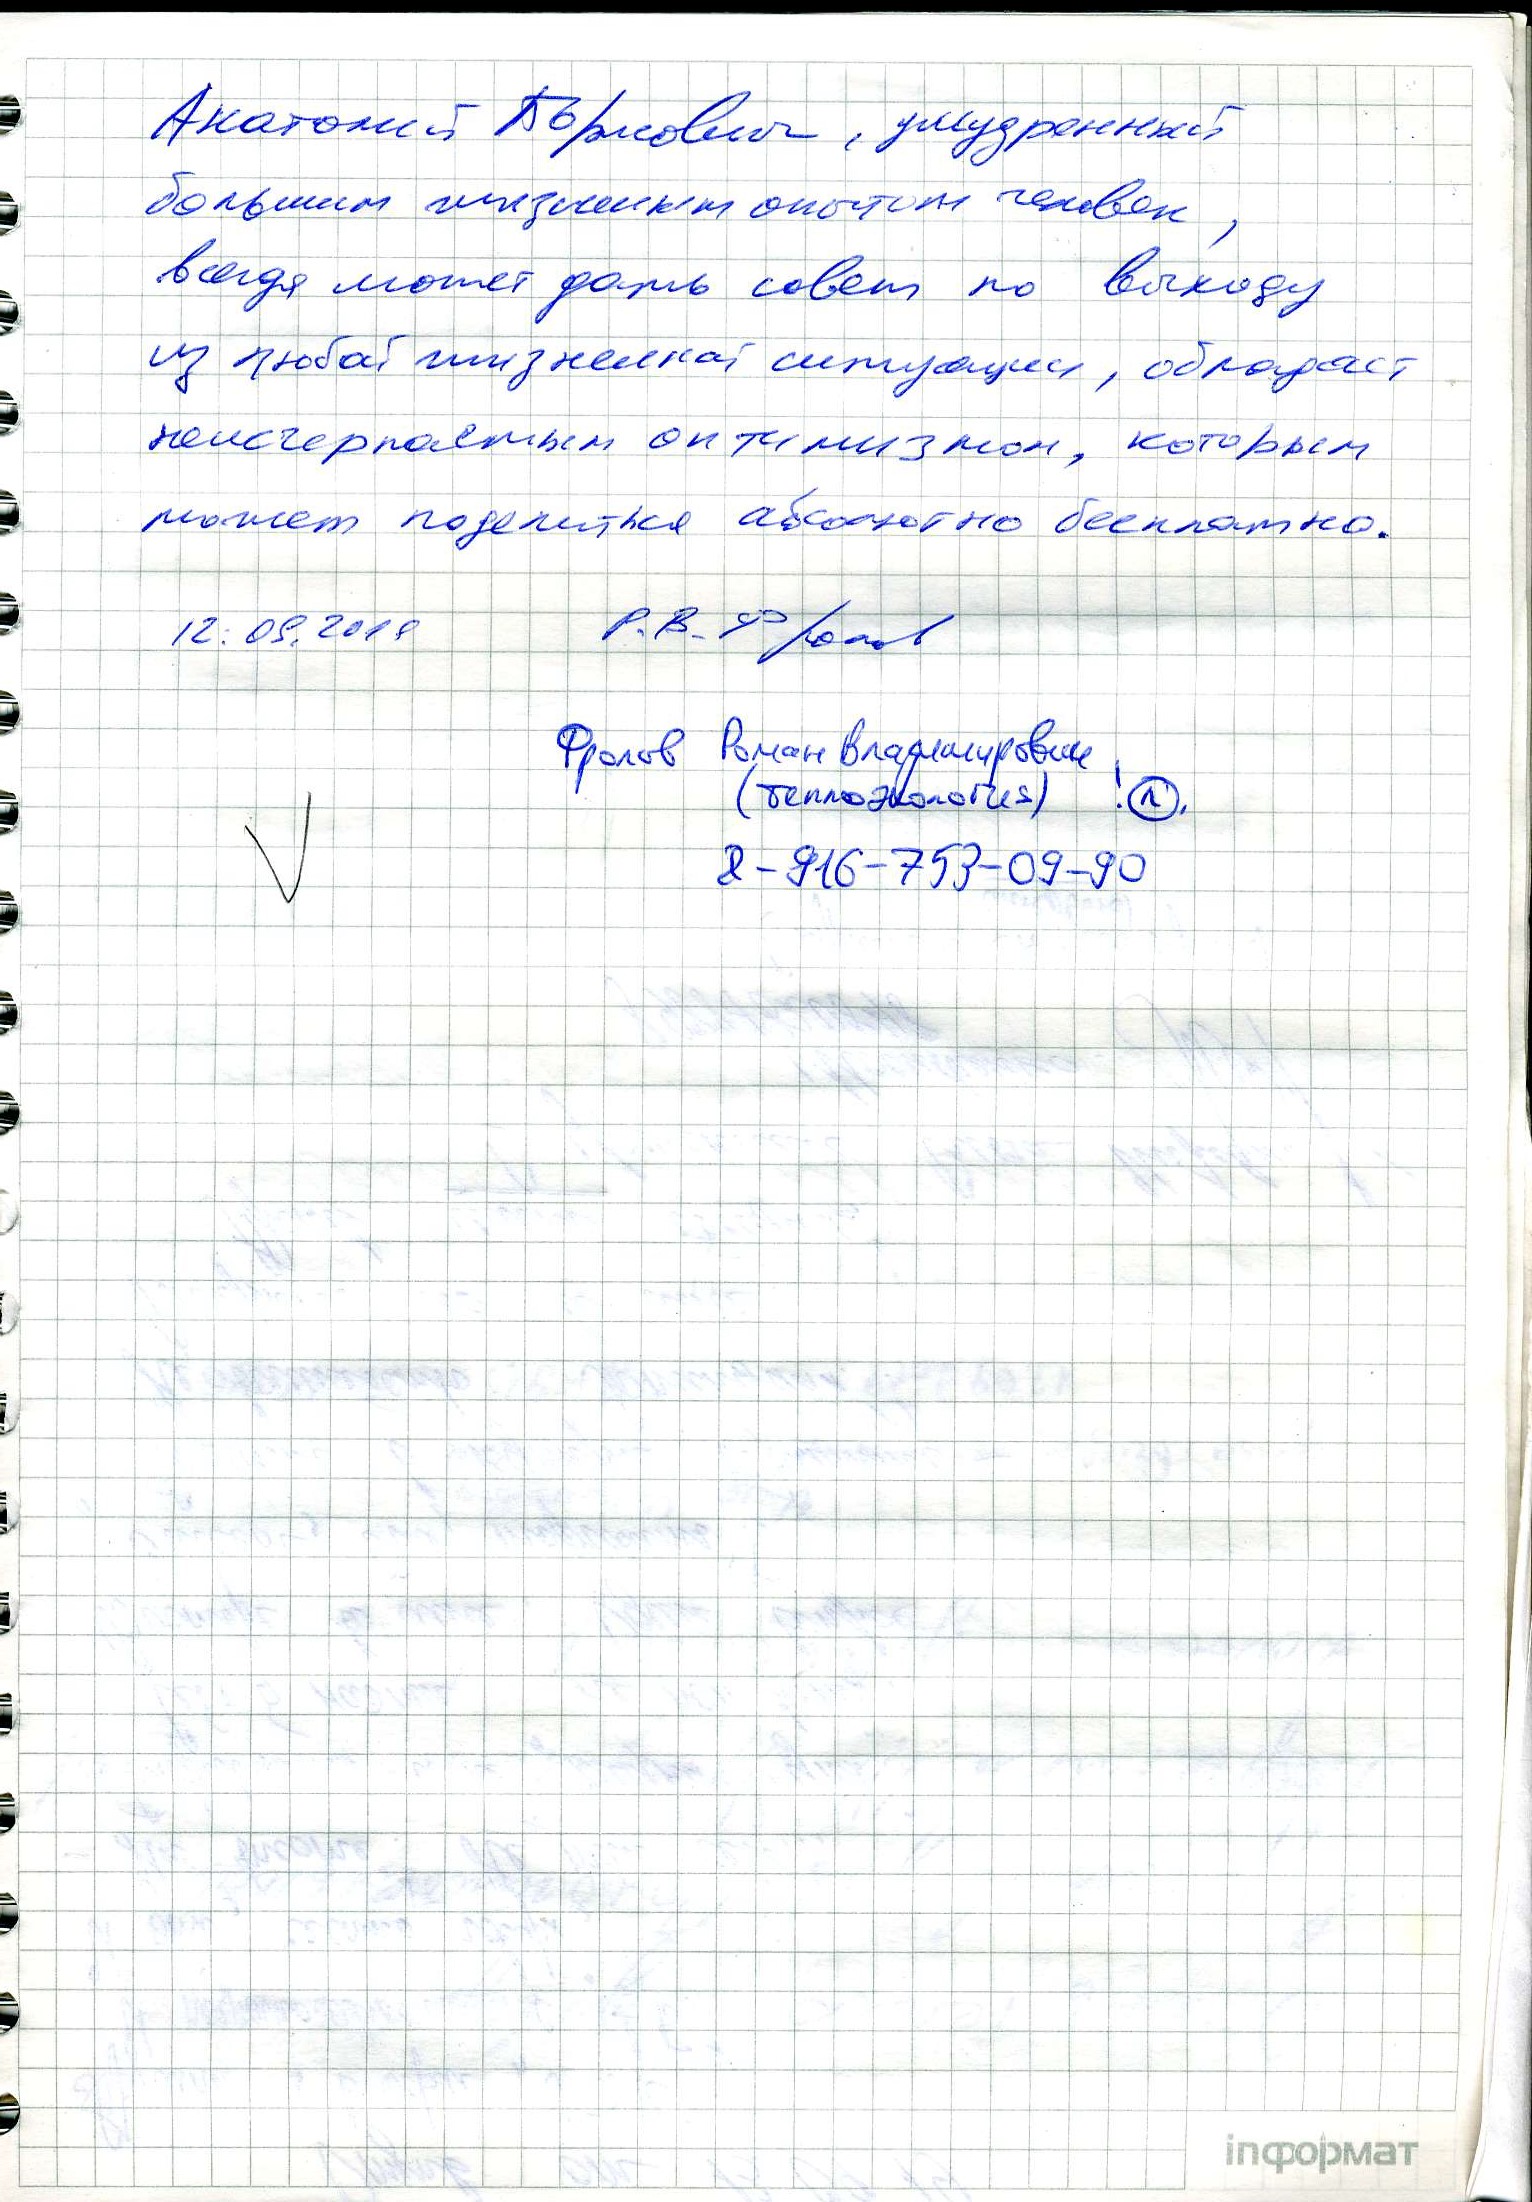 Анатолий Борисович, умудренный
большим жизненным опытом человек,
всегда может дать совет по выходу
из любой жизненной ситуации, обладает
неисчерпаемым оптимизмом, которым
может поделиться абсолютно бесплатно.
12.09.2018 Р.В. Фролов
Фролов Роман Владимирович
(теплоэкология) ! п.
8-916-753-09-90
inформат